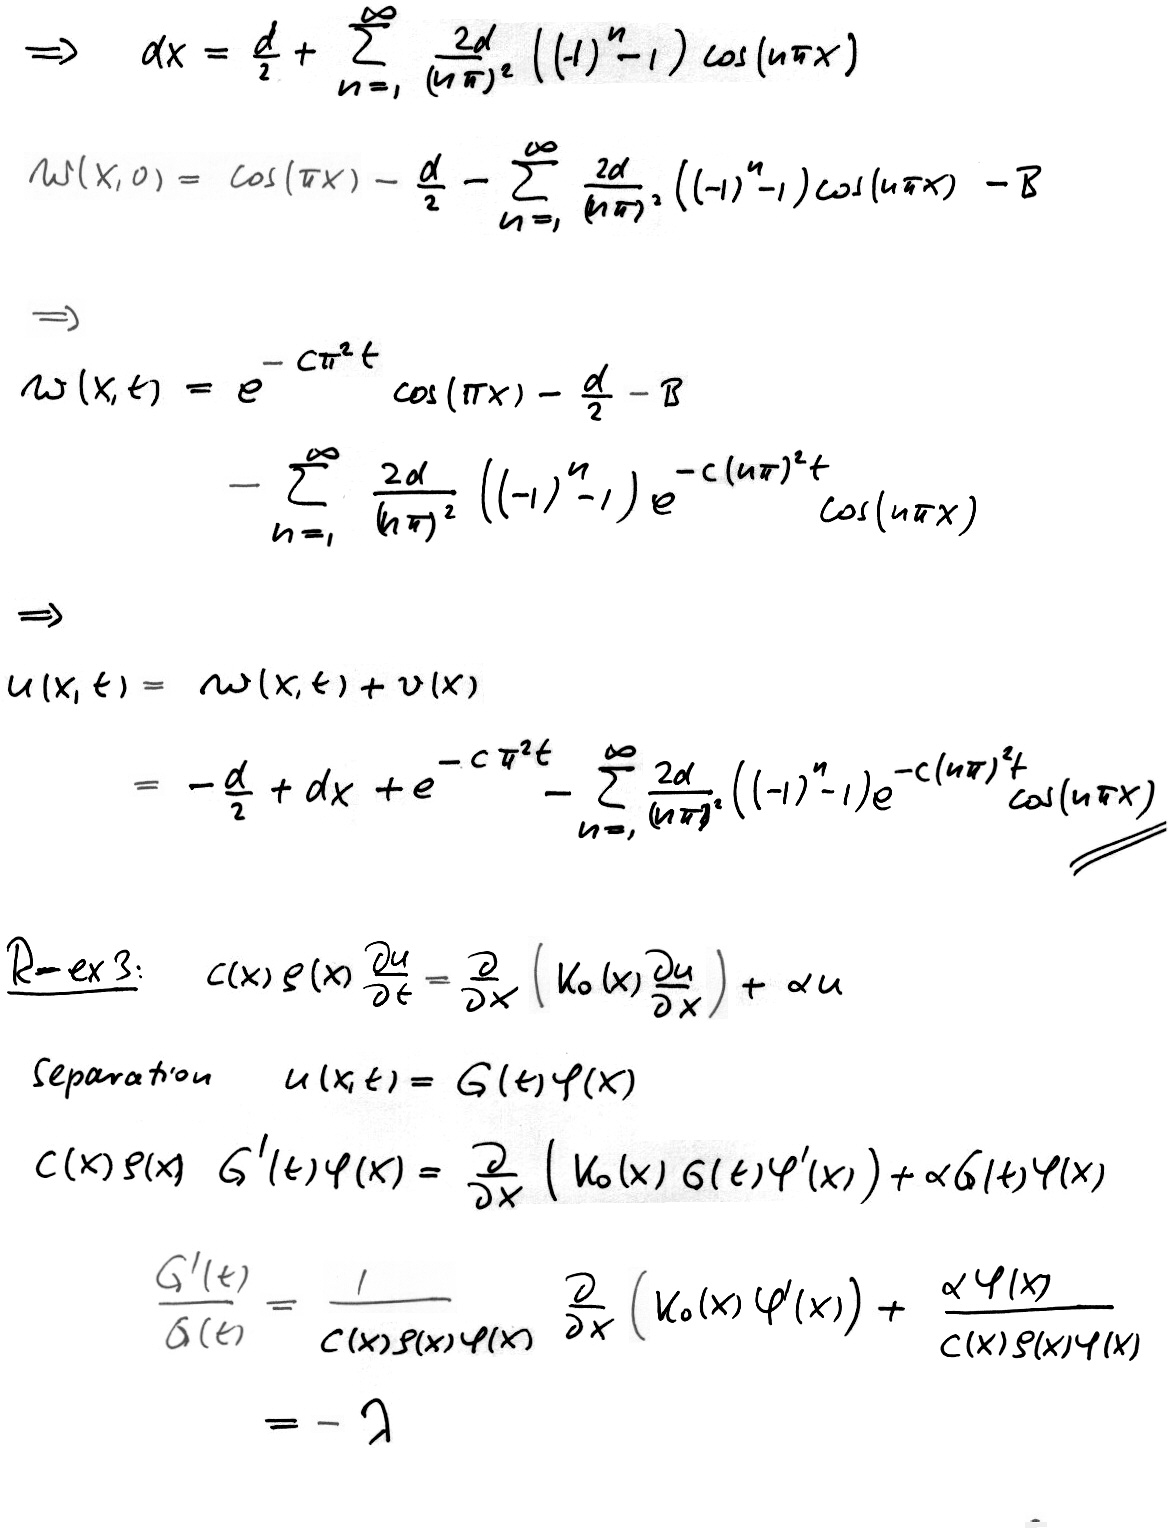 ⇒ dx = d/2 + ∑_{n=1}^{∞} 2d/(nπ)² ((-1)ⁿ-1) cos(nπx)
w(x,0) = cos(πx) - d/2 - ∑_{n=1}^{∞} 2d/(nπ)² ((-1)ⁿ-1) cos(nπx) - B
⇒
w(x,t) = e^{-cπ²t} cos(πx) - d/2 - B
- ∑_{n=1}^{∞} 2d/(nπ)² ((-1)ⁿ-1) e^{-c(nπ)²t} cos(nπx)
⇒
u(x,t) = w(x,t) + v(x)
= -d/2 + dx + e^{-cπ²t} - ∑_{n=1}^{∞} 2d/(nπ)² ((-1)ⁿ-1) e^{-c(nπ)²t} cos(nπx)
R-ex 3: c(x) ρ(x) ∂u/∂t = ∂/∂x (K₀(x) ∂u/∂x) + αu
Separation u(x,t) = G(t) φ(x)
c(x) ρ(x) G'(t) φ(x) = ∂/∂x (K₀(x) G(t) φ'(x)) + α G(t) φ(x)
G'(t)/G(t) = 1/(c(x) ρ(x) φ(x)) ∂/∂x (K₀(x) φ'(x)) + αφ(x)/(c(x) ρ(x) φ(x))
= - λ